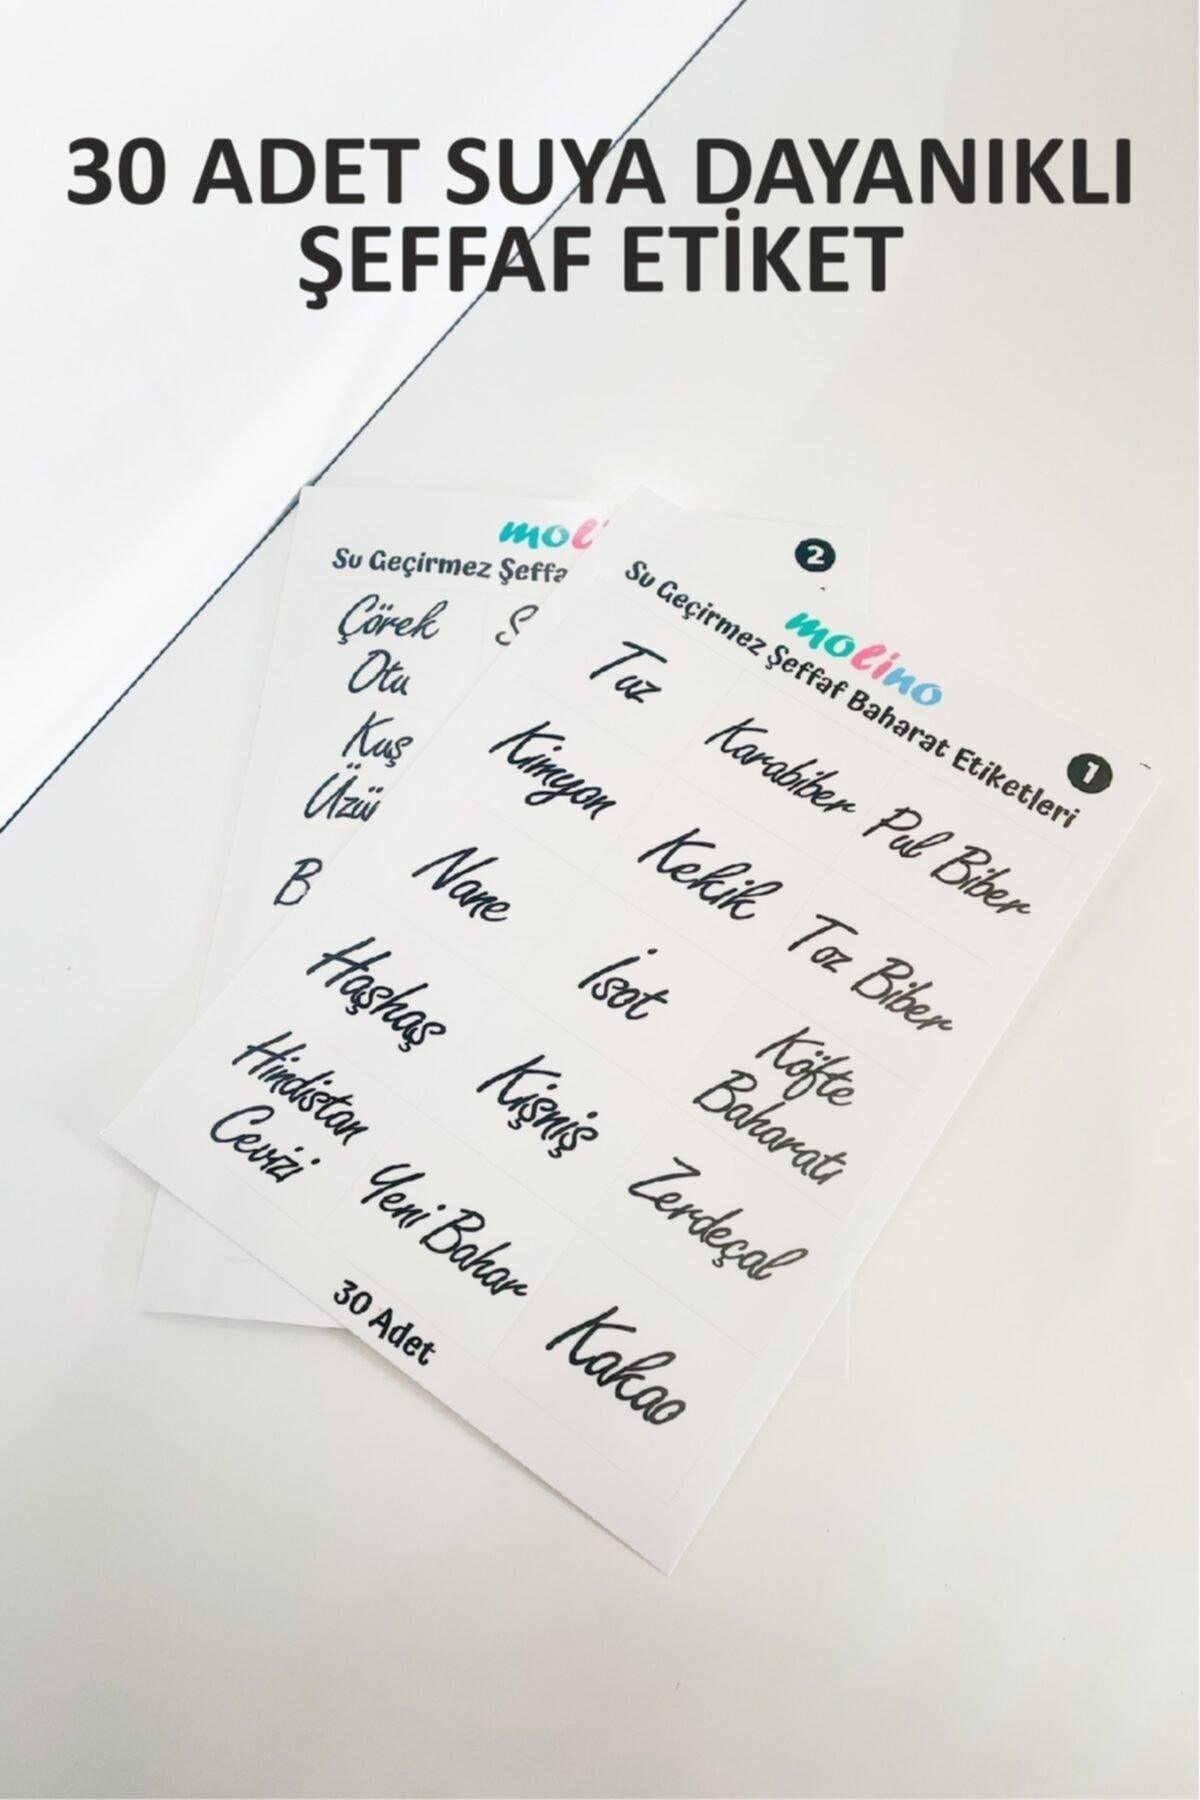 30 ADET SUYA DAYANIKLI
ŞEFFAF ETİKET
molino
Su Geçirmez Şeffaf Baharat Etiketleri
1
Tuz
Karabiber
Pul Biber
Kimyon
Kekik
Toz Biber
Nane
İsot
Köfte
Baharatı
Haşhaş
Kişniş
Zerdeçal
Hindistan
Cevizi
Yeni Bahar
Kakao
30 Adet
2
Su Geçirmez
Çörek
Otu
Kuş